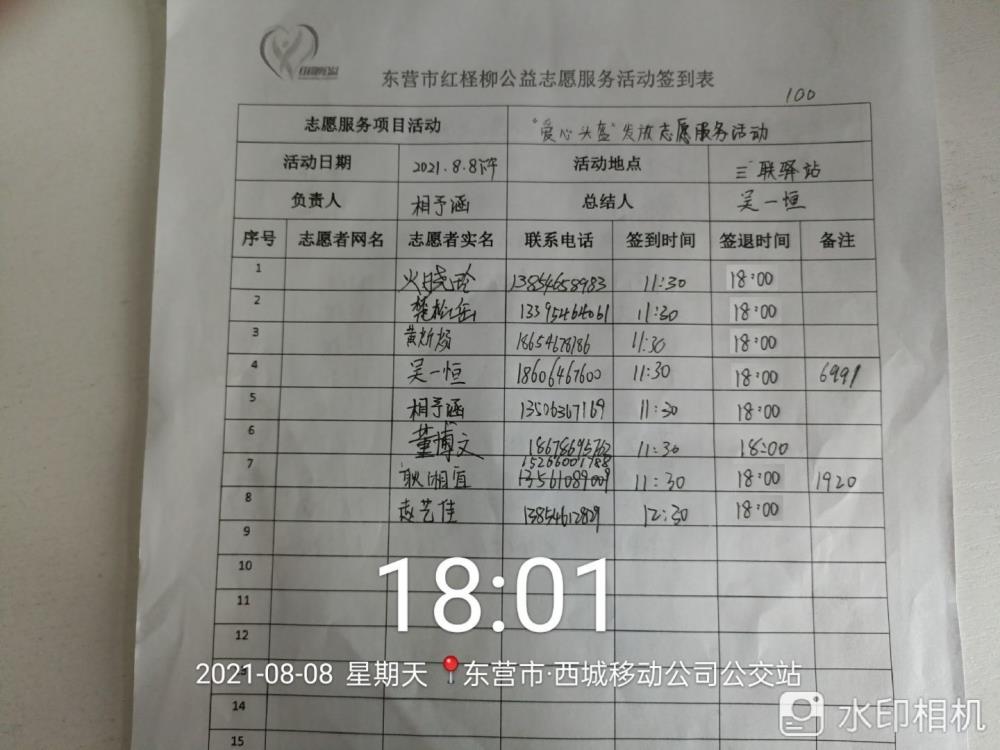 东营市红柽柳公益志愿服务活动签到表
100
志愿服务项目活动 "爱心头盔"发放志愿服务活动
活动日期 2021.8.8下午 活动地点 三联驿站
负责人 相予涵 总结人 吴一恒
序号 志愿者网名 志愿者实名 联系电话 签到时间 签退时间 备注
1 13854658983 11:30 18:00
2 13395464061 11:30 18:00
3 18654678786 11:30 18:00
4 吴一恒 18606467600 11:30 18:00 6991
5 相予涵 13506367169 11:30 18:00
6 董博文 11:30 18:00
15266001788
7 耿湘宜 13561089009 11:30 18:00 1920
8 赵艺佳 13854612829 12:30 18:00
9
10
11
12
14
15
18:01
2021-08-08 星期天 东营市·西城移动公司公交站
水印相机